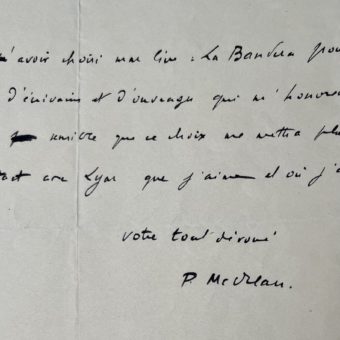 'avoir choisi mon livre La Bandera pour
d'écrivains et d'ouvrages qui m'honore
que ce choix me mettra plu
avec Lyon que j'aime et où j'a
votre tout dévoué
P. Mc Orlan.